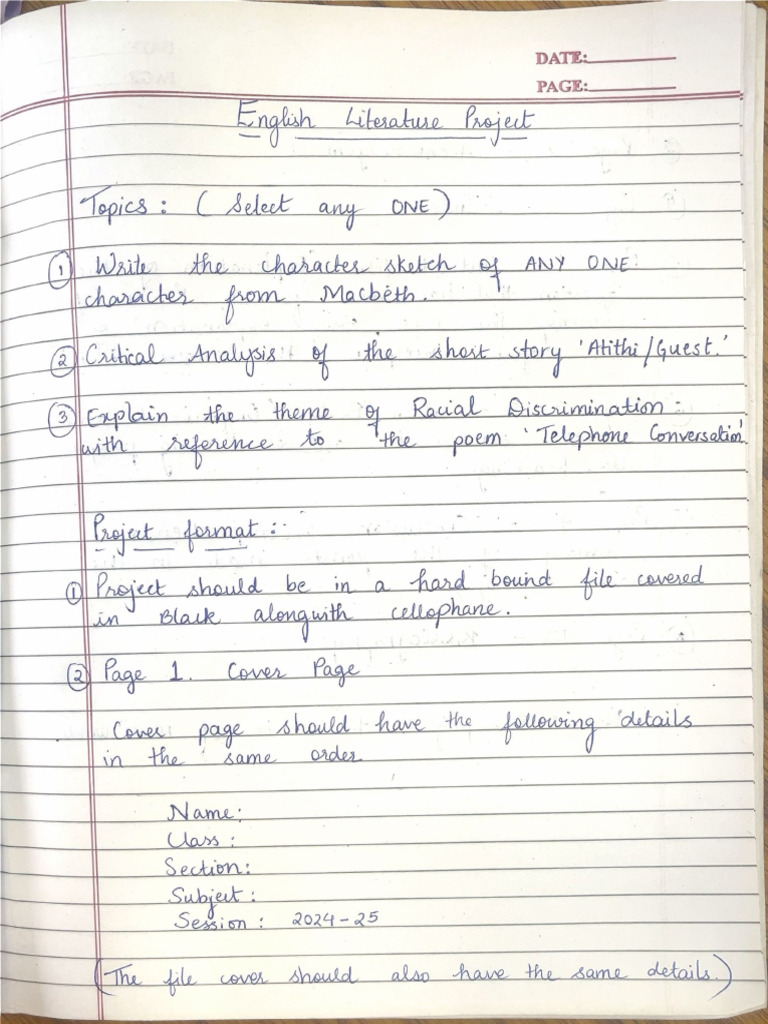 DATE:
PAGE:
English Literature Project
Topics: (Select any ONE)
① Write the character sketch of ANY ONE
character from Macbeth.
② Critical Analysis of the short story 'Atithi/Guest.'
③ Explain the theme of Racial Discrimination
with reference to the poem 'Telephone Conversation'
Project format:
① Project should be in a hard bound file covered
in Black alongwith cellophane.
② Page 1. Cover Page
Cover page should have the following details
in the same order
Name:
Class:
Section:
Subject:
Session: 2024-25
(The file cover should also have the same details.)